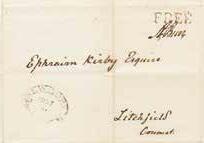 FREE
Ephraim Kirby Esquire
Litchfield
Connect.